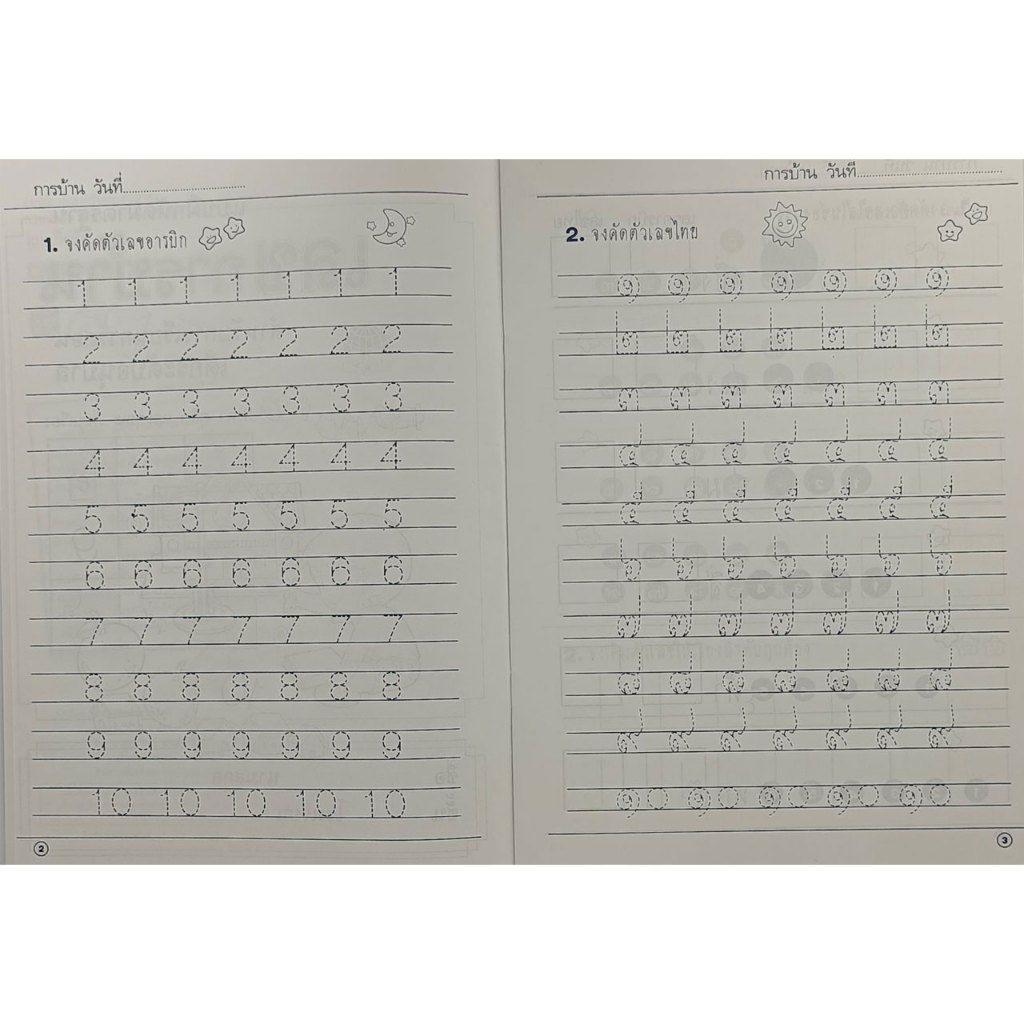 การบ้าน วันที่........................................
1. จงคัดตัวเลขอารบิก
1 1 1 1 1 1 1
2 2 2 2 2 2 2
3 3 3 3 3 3 3
4 4 4 4 4 4 4
5 5 5 5 5 5 5
6 6 6 6 6 6 6
7 7 7 7 7 7 7
8 8 8 8 8 8 8
9 9 9 9 9 9 9
10 10 10 10 10
2
การบ้าน วันที่........................................
2. จงคัดตัวเลขไทย
๑ ๑ ๑ ๑ ๑ ๑ ๑
๒ ๒ ๒ ๒ ๒ ๒ ๒
๓ ๓ ๓ ๓ ๓ ๓ ๓
๔ ๔ ๔ ๔ ๔ ๔ ๔
๕ ๕ ๕ ๕ ๕ ๕ ๕
๖ ๖ ๖ ๖ ๖ ๖ ๖
๗ ๗ ๗ ๗ ๗ ๗ ๗
๘ ๘ ๘ ๘ ๘ ๘ ๘
๙ ๙ ๙ ๙ ๙ ๙ ๙
๑๐ ๑๐ ๑๐ ๑๐ ๑๐
3